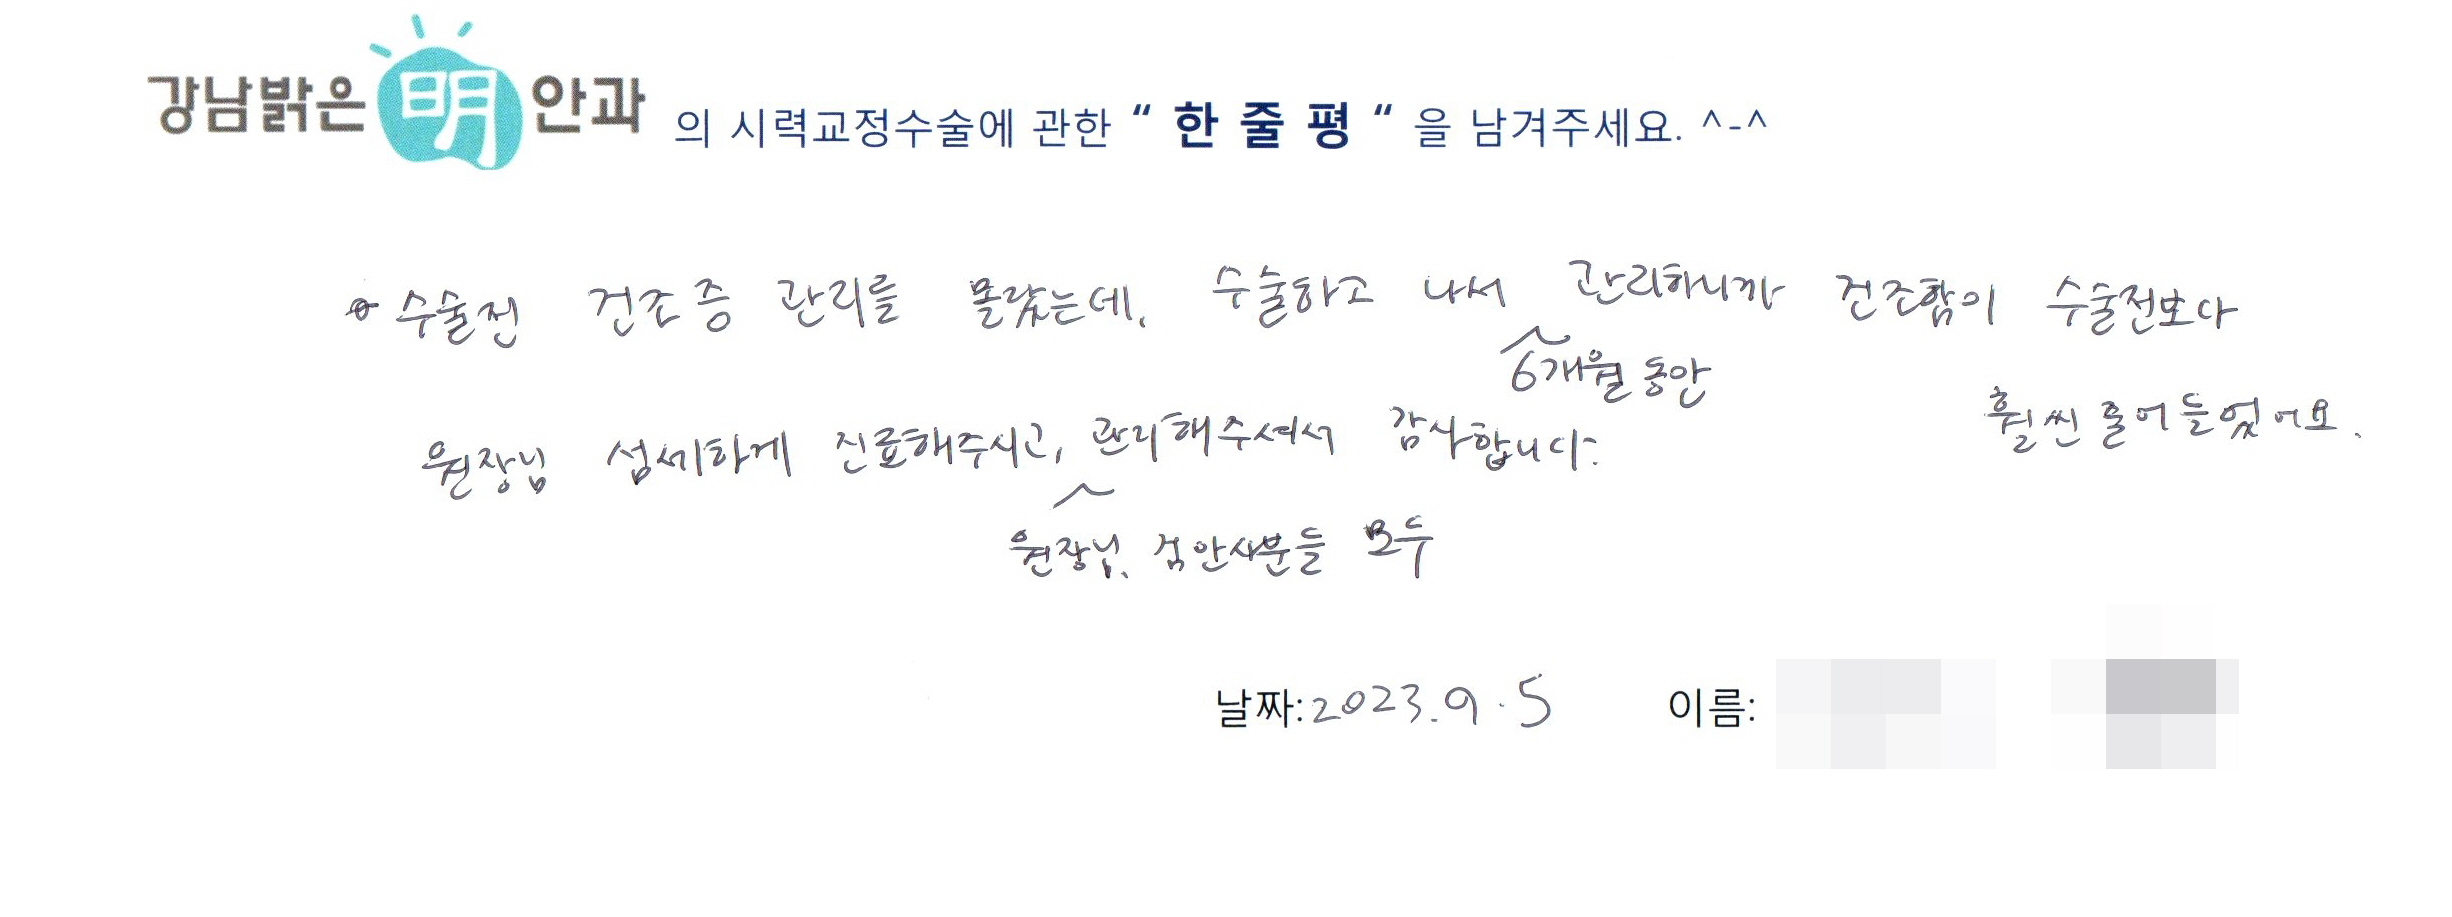 강남밝은明안과 의 시력교정수술에 관한 “ 한 줄 평 “ 을 남겨주세요. ^-^
수술전 건조증 관리를 몰랐는데, 수술하고 나서 관리하니까 건조함이 수술전보다
6개월 동안
훨씬 줄어들었어요.
원장님 섬세하게 진료해주시고, 관리해주셔서 감사합니다.
원장님, 검안사분들 모두
날짜: 2023.9.5 이름: